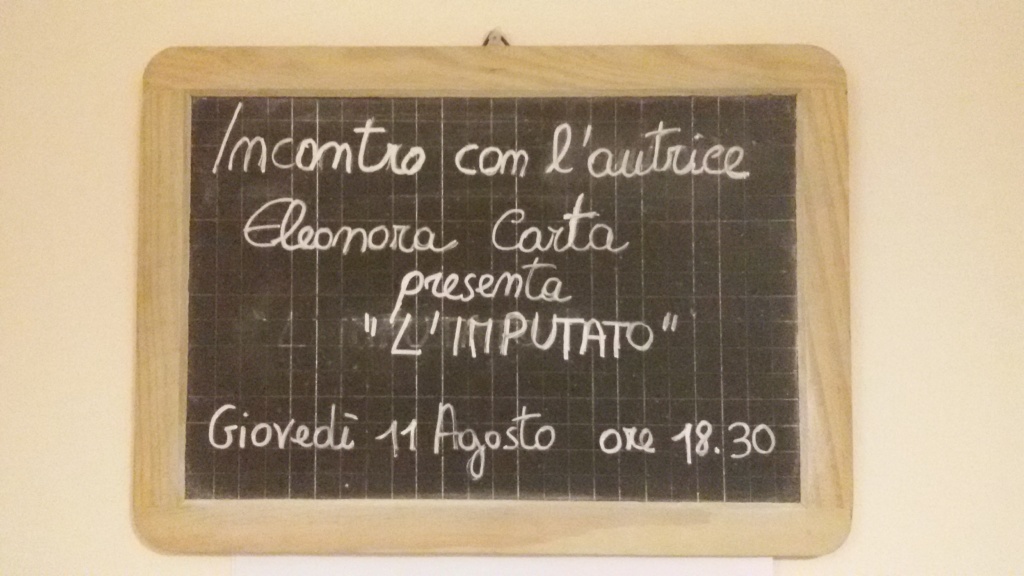 Incontro con l'autrice
Eleonora Carta
presenta
"L'IMPUTATO"
Giovedì 11 Agosto ore 18.30